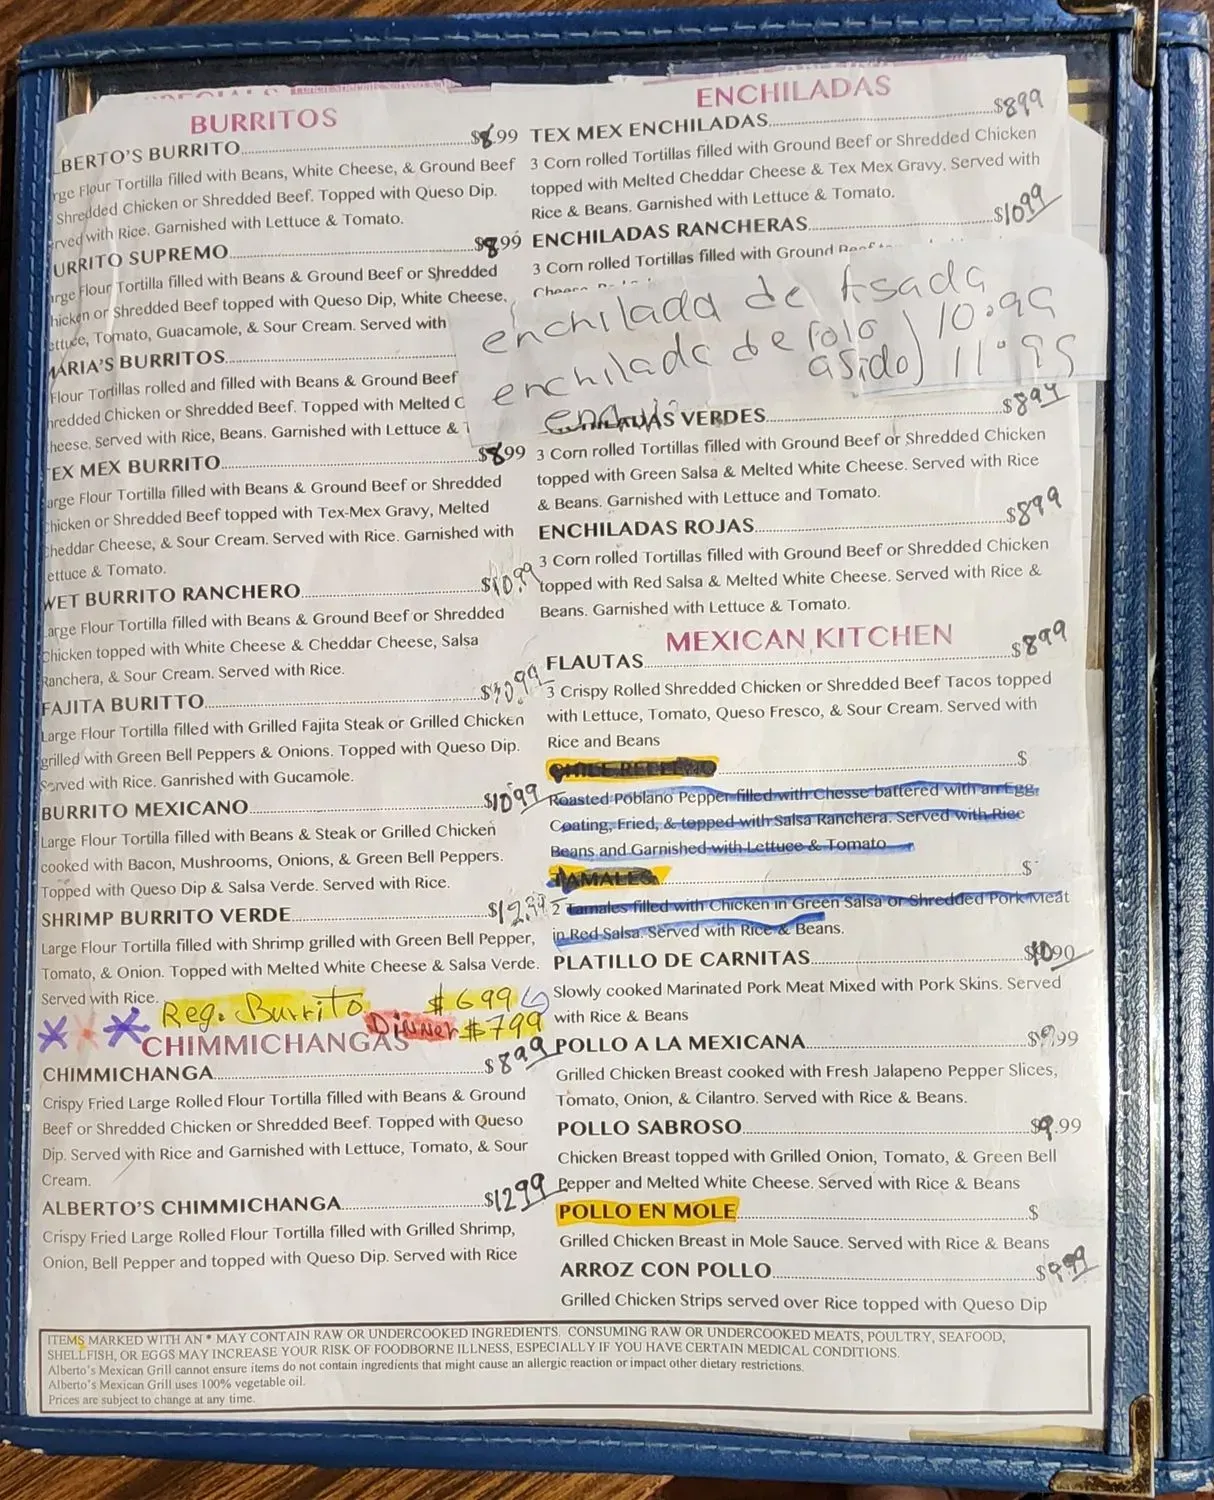 BURRITOS
BERTO'S BURRITO $8.99
rge Flour Tortilla filled with Beans, White Cheese, & Ground Beef
Shredded Chicken or Shredded Beef. Topped with Queso Dip.
erved with Rice. Garnished with Lettuce & Tomato.
URRITO SUPREMO $8.99
arge Flour Tortilla filled with Beans & Ground Beef or Shredded
hicken or Shredded Beef topped with Queso Dip, White Cheese,
ettuce, Tomato, Guacamole, & Sour Cream. Served with
MARIA'S BURRITOS
Flour Tortillas rolled and filled with Beans & Ground Beef
hredded Chicken or Shredded Beef. Topped with Melted C
heese. Served with Rice, Beans. Garnished with Lettuce &
EX MEX BURRITO $8.99
arge Flour Tortilla filled with Beans & Ground Beef or Shredded
hicken or Shredded Beef topped with Tex-Mex Gravy, Melted
heddar Cheese, & Sour Cream. Served with Rice. Garnished with
ettuce & Tomato.
WET BURRITO RANCHERO $10.99
Large Flour Tortilla filled with Beans & Ground Beef or Shredded
Chicken topped with White Cheese & Cheddar Cheese, Salsa
Ranchera, & Sour Cream. Served with Rice.
FAJITA BURITTO $10.99
Large Flour Tortilla filled with Grilled Fajita Steak or Grilled Chicken
grilled with Green Bell Peppers & Onions. Topped with Queso Dip.
Served with Rice. Ganrished with Gucamole.
BURRITO MEXICANO $10 99
Large Flour Tortilla filled with Beans & Steak or Grilled Chicken
cooked with Bacon, Mushrooms, Onions, & Green Bell Peppers.
Topped with Queso Dip & Salsa Verde. Served with Rice.
SHRIMP BURRITO VERDE $12.99
Large Flour Tortilla filled with Shrimp grilled with Green Bell Pepper,
Tomato, & Onion. Topped with Melted White Cheese & Salsa Verde.
Served with Rice.
Reg. Burrito $6 99
Dinner $7 99
CHIMMICHANGAS
CHIMMICHANGA $8 99
Crispy Fried Large Rolled Flour Tortilla filled with Beans & Ground
Beef or Shredded Chicken or Shredded Beef. Topped with Queso
Dip. Served with Rice and Garnished with Lettuce, Tomato, & Sour
Cream.
ALBERTO'S CHIMMICHANGA $12 99
Crispy Fried Large Rolled Flour Tortilla filled with Grilled Shrimp,
Onion, Bell Pepper and topped with Queso Dip. Served with Rice
ENCHILADAS
TEX MEX ENCHILADAS $8 99
3 Corn rolled Tortillas filled with Ground Beef or Shredded Chicken
topped with Melted Cheddar Cheese & Tex Mex Gravy. Served with
Rice & Beans. Garnished with Lettuce & Tomato.
ENCHILADAS RANCHERAS $10 99
3 Corn rolled Tortillas filled with Ground
enchilada de Asada 10.99
enchilada de polo
asido) 11.99
VERDES $8 99
3 Corn rolled Tortillas filled with Ground Beef or Shredded Chicken
topped with Green Salsa & Melted White Cheese. Served with Rice
& Beans. Garnished with Lettuce and Tomato.
ENCHILADAS ROJAS $8 99
3 Corn rolled Tortillas filled with Ground Beef or Shredded Chicken
topped with Red Salsa & Melted White Cheese. Served with Rice &
Beans. Garnished with Lettuce & Tomato.
MEXICAN KITCHEN
FLAUTAS $8 99
3 Crispy Rolled Shredded Chicken or Shredded Beef Tacos topped
with Lettuce, Tomato, Queso Fresco, & Sour Cream. Served with
Rice and Beans
CHILE RELLENO $
Roasted Poblano Pepper filled with Chesse battered with an Egg
Coating, Fried, & topped with Salsa Ranchera. Served with Rice
Beans and Garnished with Lettuce & Tomato
TAMALES $
2 Tamales filled with Chicken in Green Salsa or Shredded Pork Meat
in Red Salsa. Served with Rice & Beans.
PLATILLO DE CARNITAS $10 90
Slowly cooked Marinated Pork Meat Mixed with Pork Skins. Served
with Rice & Beans
POLLO A LA MEXICANA $9.99
Grilled Chicken Breast cooked with Fresh Jalapeno Pepper Slices,
Tomato, Onion, & Cilantro. Served with Rice & Beans.
POLLO SABROSO $9.99
Chicken Breast topped with Grilled Onion, Tomato, & Green Bell
Pepper and Melted White Cheese. Served with Rice & Beans
POLLO EN MOLE $
Grilled Chicken Breast in Mole Sauce. Served with Rice & Beans
ARROZ CON POLLO $9 99
Grilled Chicken Strips served over Rice topped with Queso Dip
ITEMS MARKED WITH AN * MAY CONTAIN RAW OR UNDERCOOKED INGREDIENTS. CONSUMING RAW OR UNDERCOOKED MEATS, POULTRY, SEAFOOD,
SHELLFISH, OR EGGS MAY INCREASE YOUR RISK OF FOODBORNE ILLNESS, ESPECIALLY IF YOU HAVE CERTAIN MEDICAL CONDITIONS.
Alberto's Mexican Grill cannot ensure items do not contain ingredients that might cause an allergic reaction or impact other dietary restrictions.
Alberto's Mexican Grill uses 100% vegetable oil.
Prices are subject to change at any time.